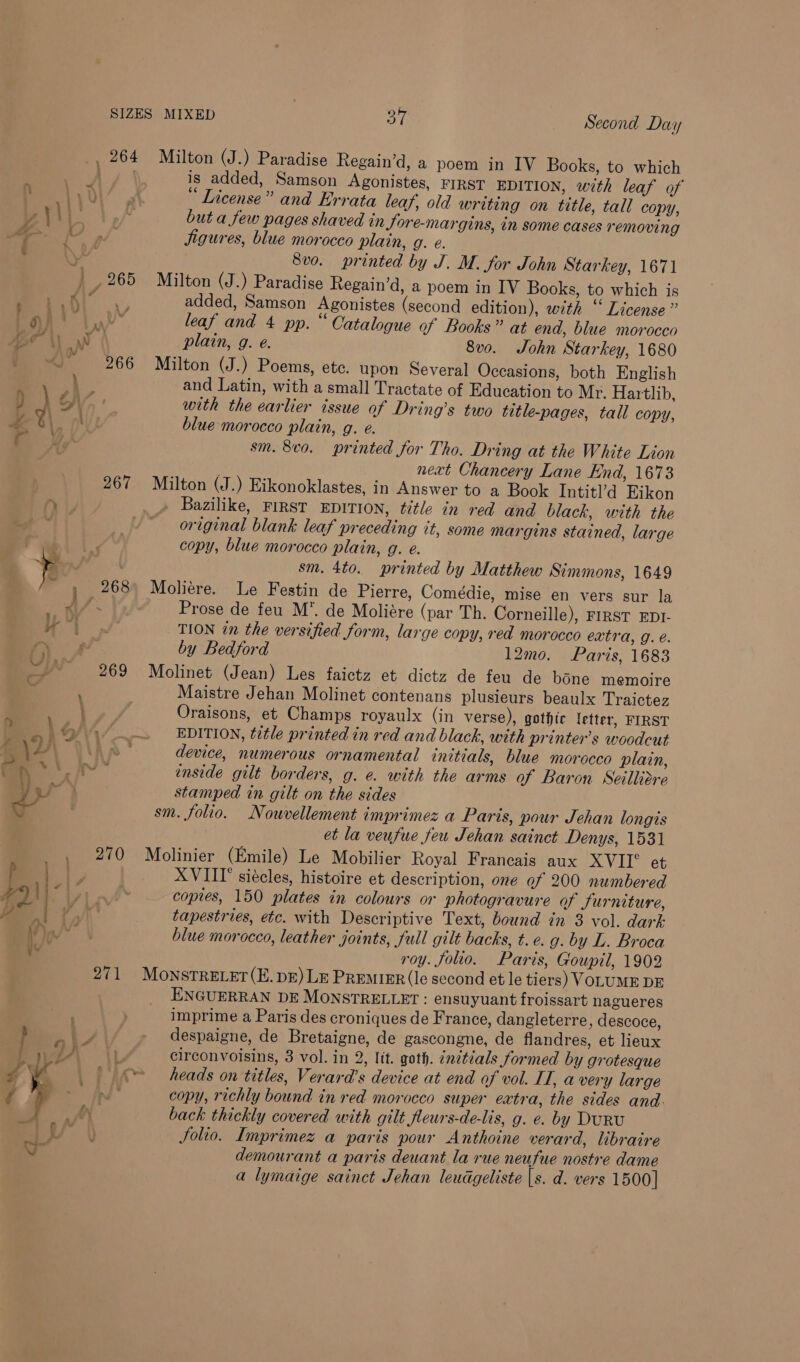 SIZES MIXED 37 Second Day
264 Milton (J.) Paradise Regain'd, a poem in IV Books, to which
is added, Samson Agonistes, FIRST EDITION, with leaf of
“License” and Errata leaf, old writing on title, tall copy,
but a few pages shaved in fore-margins, in some cases removing
figures, blue morocco plain, g. e.
8vo. printed by J. M. for John Starkey, 1671
265 Milton (J.) Paradise Regain'd, a poem in IV Books, to which is
added, Samson Agonistes (second edition), with “License”
leaf and 4 pp. “Catalogue of Books” at end, blue morocco
plain, g. e. 8vo. John Starkey, 1680
266 Milton (J.) Poems, etc. upon Several Occasions, both English
and Latin, with a small Tractate of Education to Mr. Hartlib,
with the earlier issue of Dring's two title-pages, tall copy,
blue morocco plain, g. e.
sm. 8vo. printed for Tho. Dring at the White Lion
next Chancery Lane End, 1673
267 Milton (J.) Eikonoklastes, in Answer to a Book Intitl'd Eikon
Bazilike, FIRST EDITION, title in red and black, with the
original blank leaf preceding it, some margins stained, large
copy, blue morocco plain, g. e.
sm. 4to. printed by Matthew Simmons, 1649
268 Molière. Le Festin de Pierre, Comédie, mise en vers sur la
Prose de feu Mr. de Molière (par Th. Corneille), FIRST EDI-
TION in the versified form, large copy, red morocco extra, g. e.
by Bedford 12mo. Paris, 1683
269 Molinet (Jean) Les faictz et dictz de feu de bōne memoire
Maistre Jehan Molinet contenans plusieurs beaulx Traictez
Oraisons, et Champs royaulx (in verse), gothic letter, FIRST
EDITION, title printed in red and black, with printer's woodcut
device, numerous ornamental initials, blue morocco plain,
inside gilt borders, g. e. with the arms of Baron Seillière
stamped in gilt on the sides
sm. folio. Nouvellement imprimez a Paris, pour Jehan longis
et la veufue feu Jehan sainct Denys, 1531
270 Molinier (Émile) Le Mobilier Royal Francais aux XVIIe et
XVIIIe siècles, histoire et description, one of 200 numbered
copies, 150 plates in colours or photogravure of furniture,
tapestries, etc. with Descriptive Text, bound in 3 vol. dark
blue morocco, leather joints, full gilt backs, t. e. g. by L. Broca
roy. folio. Paris, Goupil, 1902
271 MONSTRELET (E. DE) LE PREMIER (le second et le tiers) VOLUME DE
ENGUERRAN DE MONSTRELLET: ensuyuant froissart nagueres
imprime a Paris des croniques de France, dangleterre, descoce,
despaigne, de Bretaigne, de gascongne, de flandres, et lieux
circonvoisins, 3 vol. in 2, lit. goth. initials formed by grotesque
heads on titles, Verard's device at end of vol. II, a very large
copy, richly bound in red morocco super extra, the sides and
back thickly covered with gilt fleurs-de-lis, g. e. by DURU
folio. Imprimez a paris pour Anthoine verard, libraire
demourant a paris deuant la rue neufue nostre dame
a lymaige sainct Jehan leuāgeliste [s. d. vers 1500]